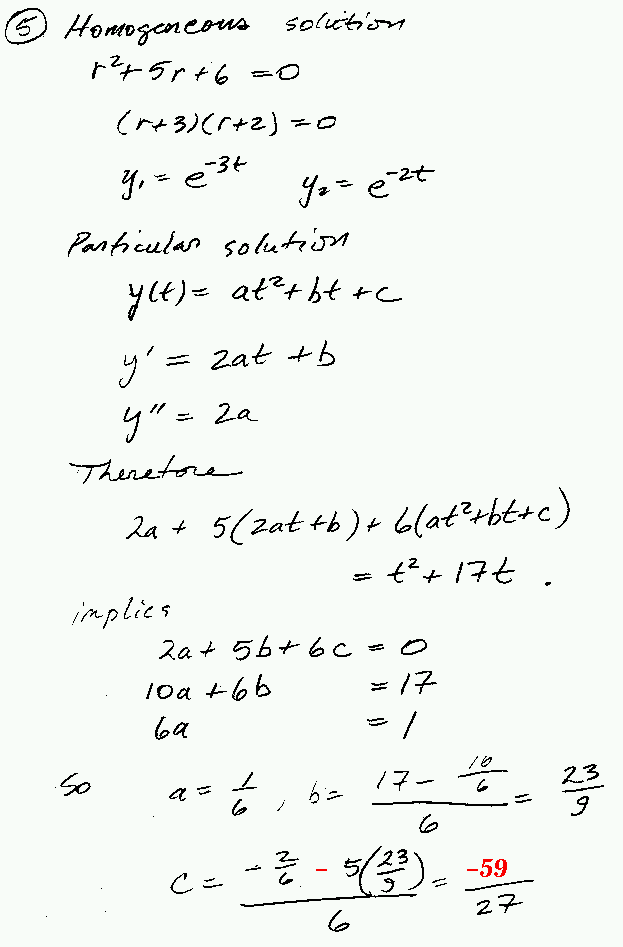 ⑤ Homogeneous solution
r²+5r+6 =0
(r+3)(r+2)=0
y₁ = e^{-3t}    y₂ = e^{-2t}
Particular solution
y(t)= at²+bt+c
y' = 2at+b
y'' = 2a
Therefore
2a + 5(2at+b)+6(at²+bt+c)
= t²+17t .
implies
2a+5b+6c = 0
10a+6b = 17
6a = 1
So a = 1/6, b = (17 - 10/6)/6 = 23/9
c = (-2/6 - 5(23/9))/6 = -59/27